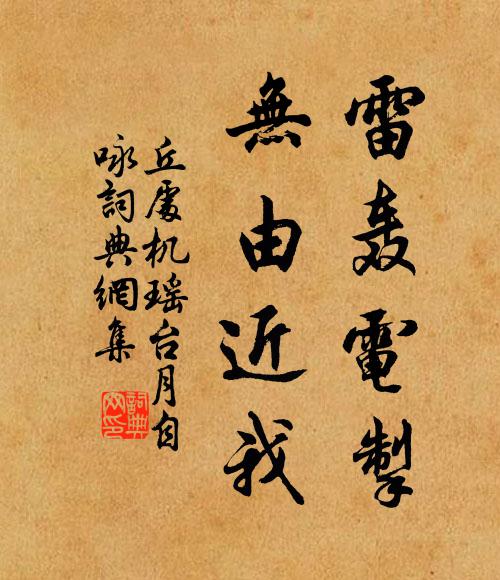 雷轰電掣
無由近我
丘處机瑶台月自
咏詞典網集
詞典網印